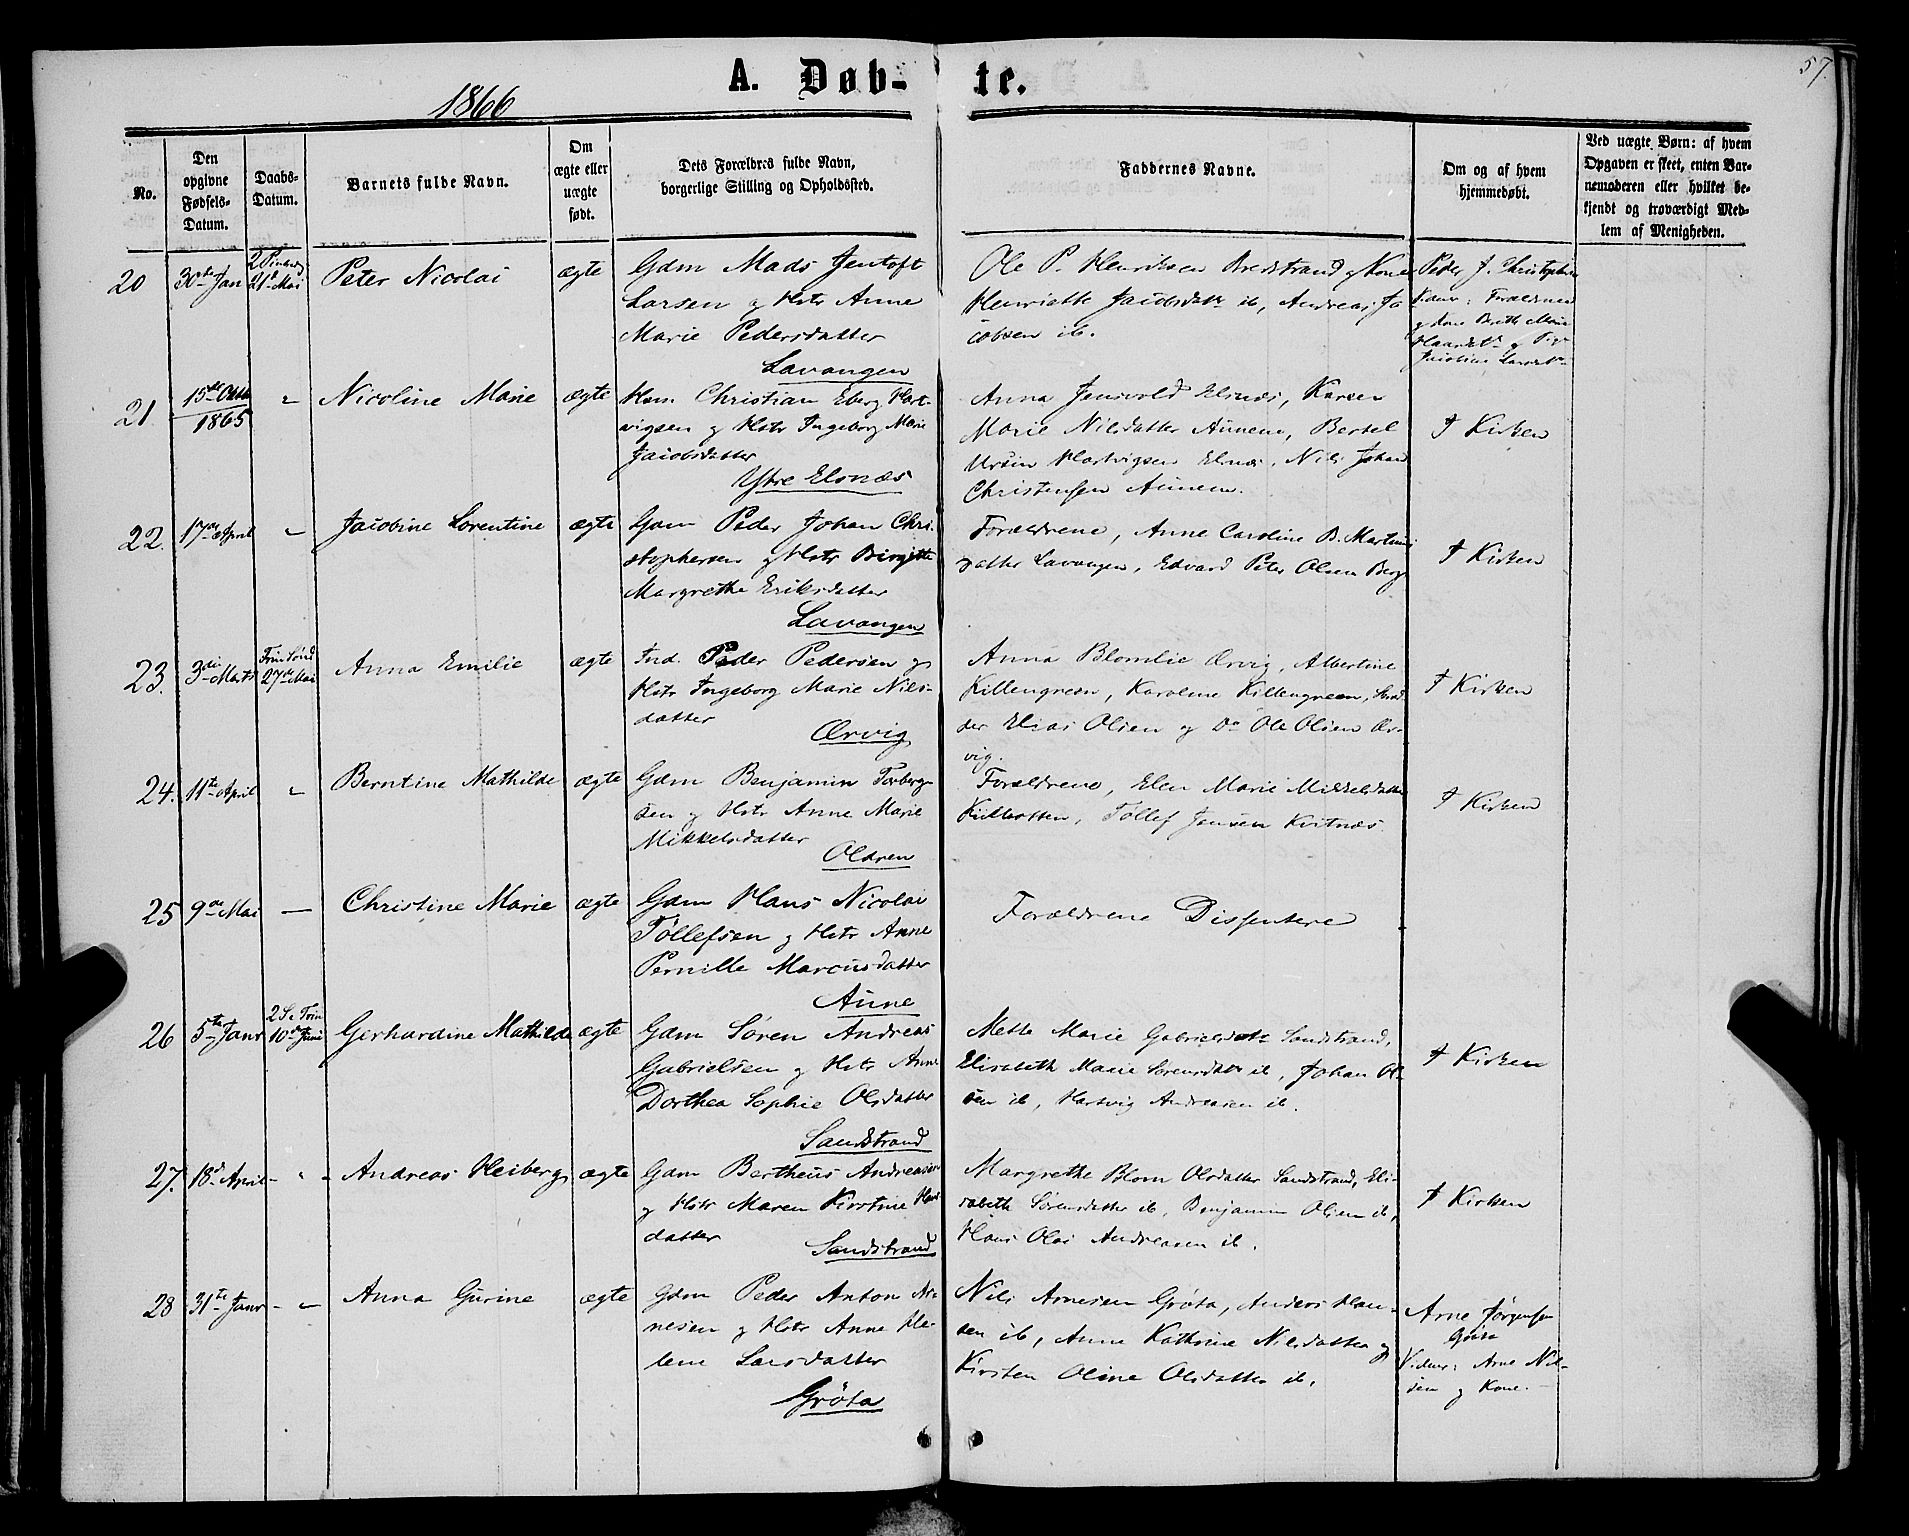 57.
A. Døb- te.
1866
No.
Den opgivne Fødsels-Datum.
Daabs-Datum.
Barnets fulde Navn.
Om ægte eller uægte født.
Dets Forældres fulde Navn, borgerlige Stilling og Opholdssted.
Faddernes Navne.
Om og af hvem hjemmedøbt.
Ved uægte Børn: af hvem Opgaven er skeet, enten Barnemoderen eller hvilket bekjendt og troværdigt Medlem af Menigheden.
20 30te Jan 21de Mai Peter Nicolai ægte
Gdm Mads Jentoft
Larsen og Hstr Anne
Marie Pedersdatter
Lavangen
Ole P. Henriksen Bredstrand og Kone
Henriette Jacobsdatr ib, Andreas Ja
cobsen ib.
Peder J. Christophersen
Vidner: Forældrene
og Kone Berith Marie
21. 15de 1865 " Nicoline Marie ægte
Hsm. Christian Eberg Hart-
vigsen og Hstr Ingeborg Marie
Jacobsdatter
Ytre Elsnæs
Anna Jensvold Elsnæs, Karen
Marie Nilsdatter Aunene, Bertel
Ursin Hartvigsen Elsnæs, Nils Johan
Christensen Aunene.
I Kirken
22. 17de April " Jacobine Lorentine ægte
Gdm Peder Johan Chri-
stophersen og Hstr Birgitte
Margrethe Eriksdatter
Lavangen
Forældrene, Anne Caroline B. Martins
datter Lavangen, Edvard Peter Olsen Berg
I Kirken
23. 3die Marts Trin Sønd 27de Mai Anna Emilie ægte
Ind. Peder Pedersen og
Hstr Ingeborg Marie Nils-
datter
Ørvig
Anna Blomlie Ørvig, Albertine
Killengreen, Karoline Killengreen,
Elias Olsen og Do Ole Olsen Ør-
vig.
I Kirken
24. 11te April " Berntine Mathilde ægte
Gdm Benjamin Torberg-
sen og Hstr Anne Marie
Mikkelsdatter
Oldren
Forældrene, Elen Marie Mikkelsdatter
Tollef Jensen
I Kirken
25 9de Mai — Christine Marie ægte
Gdm Hans Nicolai
Tøllefsen og Hstr Anne
Pernille Marcusdatter
Aune
Forældrene Dissentere
26 5te Janr 2 S. e Trin 10de Juni Gerhardine Mathilde ægte
Gdm Søren Andreas
Gabrielsen og Hstr Anne
Dorthea Sophie Olsdatter
Sandstrand
Mette Marie Gabrielsdatr Sandstrand,
Elisabeth Marie Sørensdatr ib, Johan Ol-
sen ib, Hartvig Andreasen ib.
I Kirken
27. 18de April - " - Andreas Heiberg ægte
Gdm Bertheus Andreasen
og Hstr Maren Kirstine Hans
datter
Sandstrand
Margrethe Blom Olsdatter Sandstrand, Eli-
sabeth Sørensdatter ib, Benjamin Olsen ib,
Hans Olai Andreasen ib.
I Kirken
28 31te Janr - " Anna Gurine ægte
Gdm Peder Anton Ar-
nesen og Hstr Anne He-
lene Larsdatter
Grøta
Nils Arnesen Grøta, Anders Han-
sen ib, Anne Kathrine Nilsdatter og
Kirsten Oline Olsdatter ib.
Arne Jørgensen
Grøta
Vidner: Arne Nil-
sen og Kone.